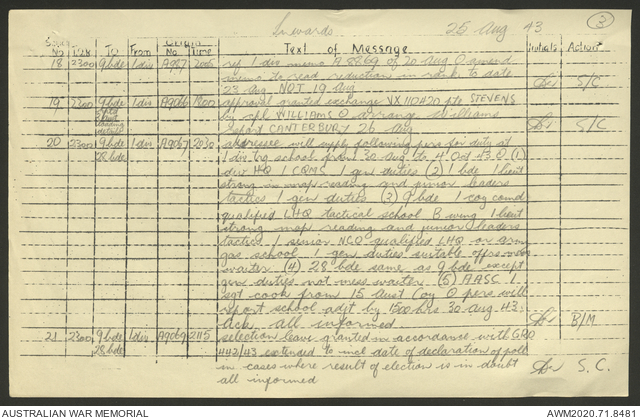 Inwards 25 Aug 43 3
Serial No Time To From Origin No Time Text of Message Initials Action
18 2300 9 bde 1 div A947 2005 ref 1 div memo A 8869 of 20 Aug O amend
memo to read reduction in rank to date
23 Aug NOT 19 Aug S/C
19 2300 9 bde 1 div A9066 1800 approval granted exchange VX 110420 pte STEVENS
by cpl WILLIAMS O arrange Williams
report CANTERBURY 26 Aug S/C
20 2300 9 bde 1 div A9067 2030 addressee will supply following pers for duty at
28 bde 1 div HQ school from 30 Aug to 4 Oct 43 O (1)
div HQ 1 CQMS 1 gen duties (2) 1 bde 1 lieut
strong in map reading and junior leaders
tactics 1 gen duties (3) 9 bde 1 coy comd
qualified LHQ tactical school B wing 1 lieut
strong map reading and junior leaders
tactics 1 senior NCO qualified LHQ or army
gas school 1 gen duties suitable offrs mess
waiter (4) 28 bde same as 9 bde except
gen duties not mess waiter (5) AASC 1
sgt cook from 15 Aust Coy O pers will
report school adjt by 1500 hrs 30 Aug 43
ack all informed B/M
21 2300 9 bde 1 div A9069 2115 selection leave granted in accordance with GRO
28 bde 442/43 extended to incl date of declaration of poll
in cases where result of election is in doubt
all informed S.C.
AUSTRALIAN WAR MEMORIAL AWM2020.71.8481